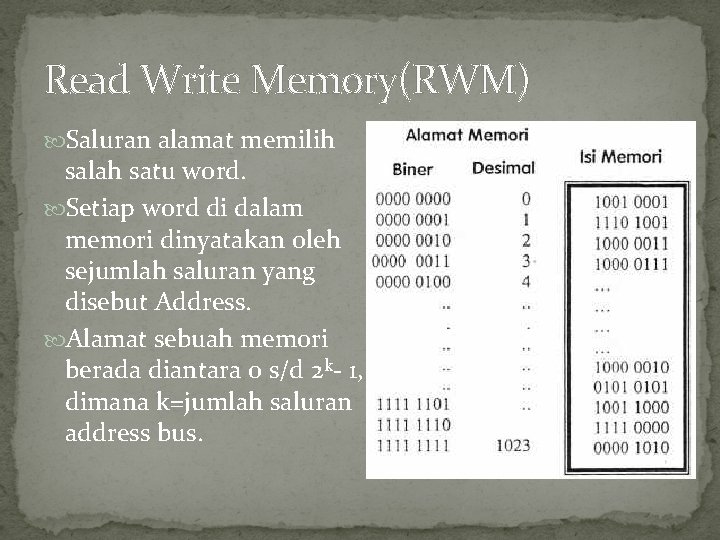 Read Write Memory(RWM)
Saluran alamat memilih
salah satu word.
Setiap word di dalam
memori dinyatakan oleh
sejumlah saluran yang
disebut Address.
Alamat sebuah memori
berada diantara 0 s/d 2ᵏ- 1,
dimana k=jumlah saluran
address bus.
Alamat Memori
Isi Memori
Biner Desimal
0000 0000 0 1001 0001
0000 0001 1 1110 1001
0000 0010 2 1000 0011
0000 0011 3 1000 0111
0000 0100 4 ...
.. .. ...
. . ...
.. .. ...
.. .. 1000 0010
.. .. 0101 0101
1111 1101 .. 1001 1000
1111 1110 1111 0000
1111 1111 1023 0000 1010